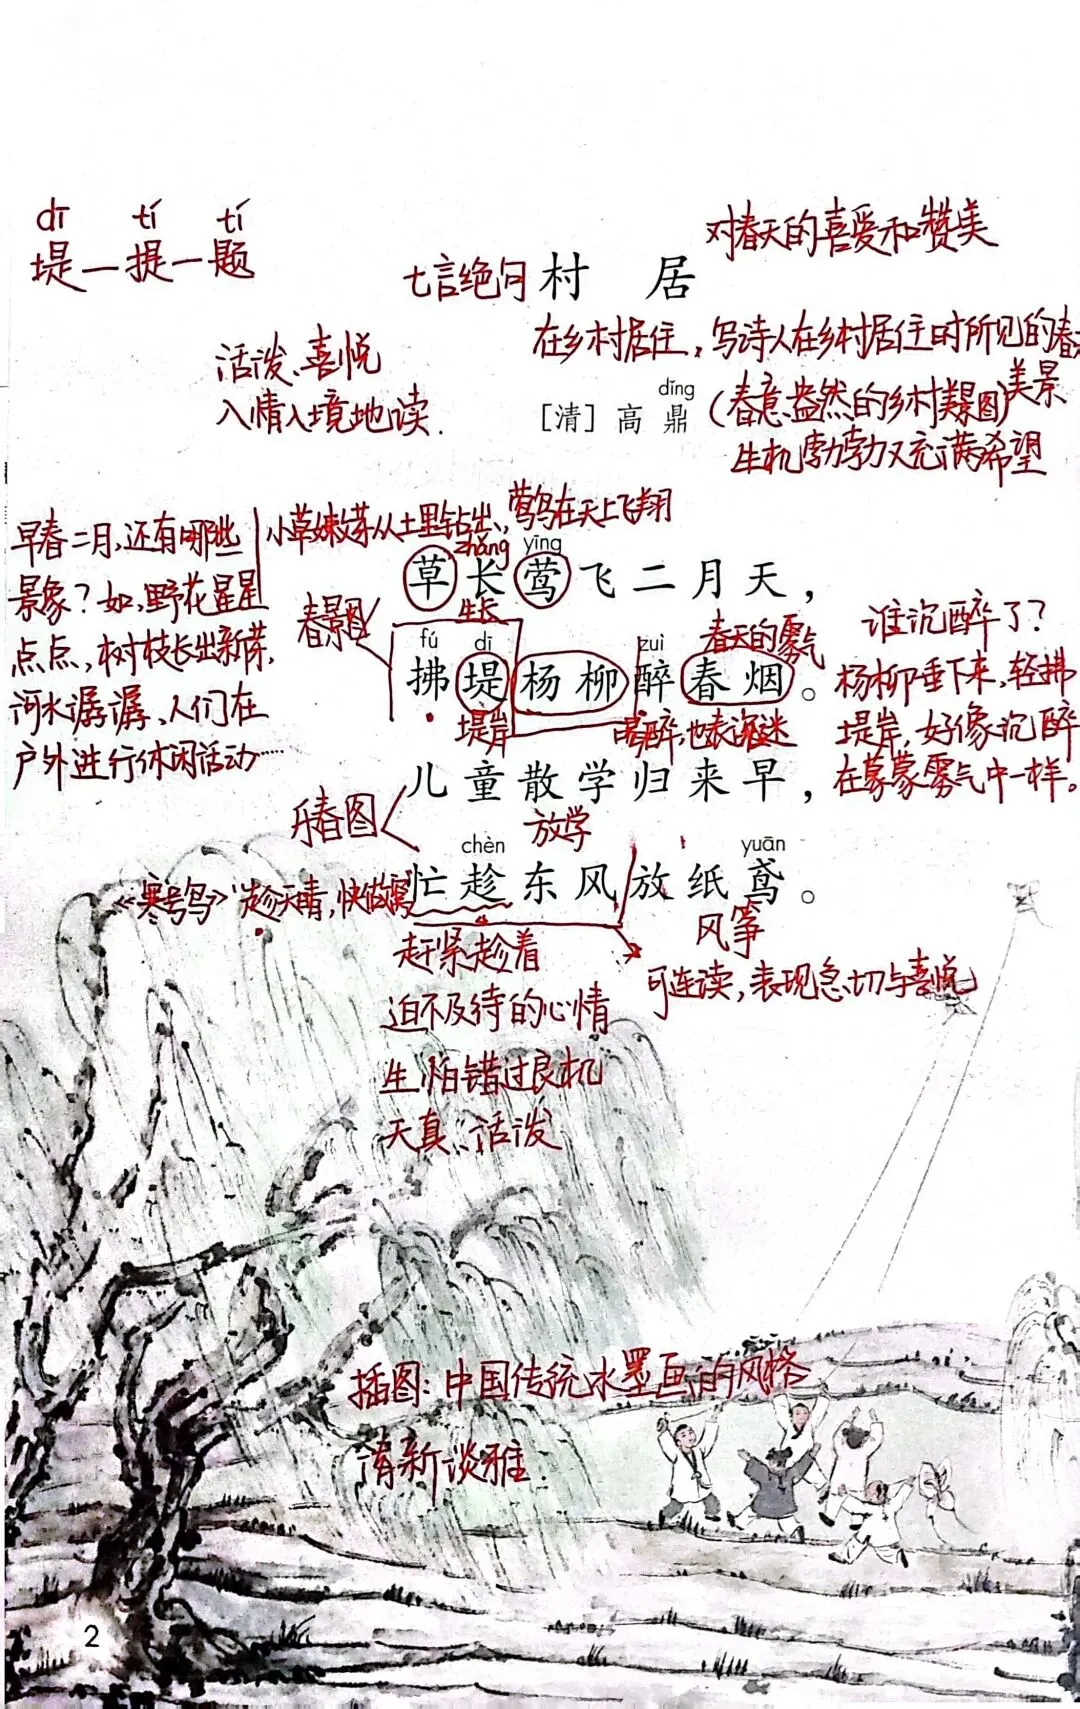 dī tí tí
堤一提一题
对春天的喜爱和赞美
七言绝句 村 居
在乡村居住，写诗人在乡村居住时所见的春天
美景
活泼、喜悦
入情入境地读.
dǐng
[清] 高 鼎
(春意盎然的乡村美景图)
生机勃勃又充满希望
早春二月，还有哪些
景象？如，野花星星
点点，树枝长出新芽，
河水潺潺，人们在
户外进行休闲活动……
小草嫩芽从土里钻出，莺鸟在天上飞翔
zhǎng yīng
草 长 莺 飞 二 月 天，
生长
春景图
fú dī zuì
春天的雾气
拂 堤 杨 柳 醉 春 烟。
堤岸
喝醉，也表沉迷
谁沉醉了？
杨柳垂下来，轻拂
堤岸，好像沉醉
在蒙蒙雾气中一样。
儿 童 散 学 归 来 早，
放学
乐春图
chèn yuān
忙 趁 东 风 放 纸 鸢。
《寒号鸟》“趁天晴，快做窝
赶紧趁着
风筝
可连读，表现急切与喜悦
迫不及待的心情
生怕错过良机
天真、活泼
插图：中国传统水墨画的风格
清新淡雅.
2